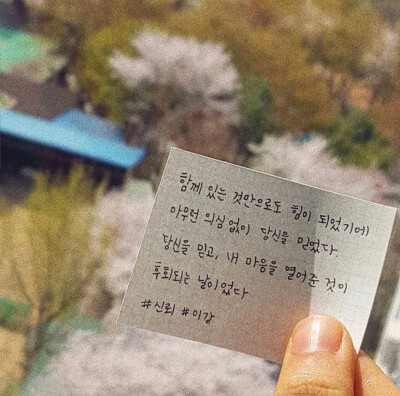 함께 있는 것만으로도 힘이 되었기에
아무런 의심 없이 당신을 믿었다.
당신을 믿고, 내 마음을 열어준 것이
후회되는 날이었다
#신뢰 #이강